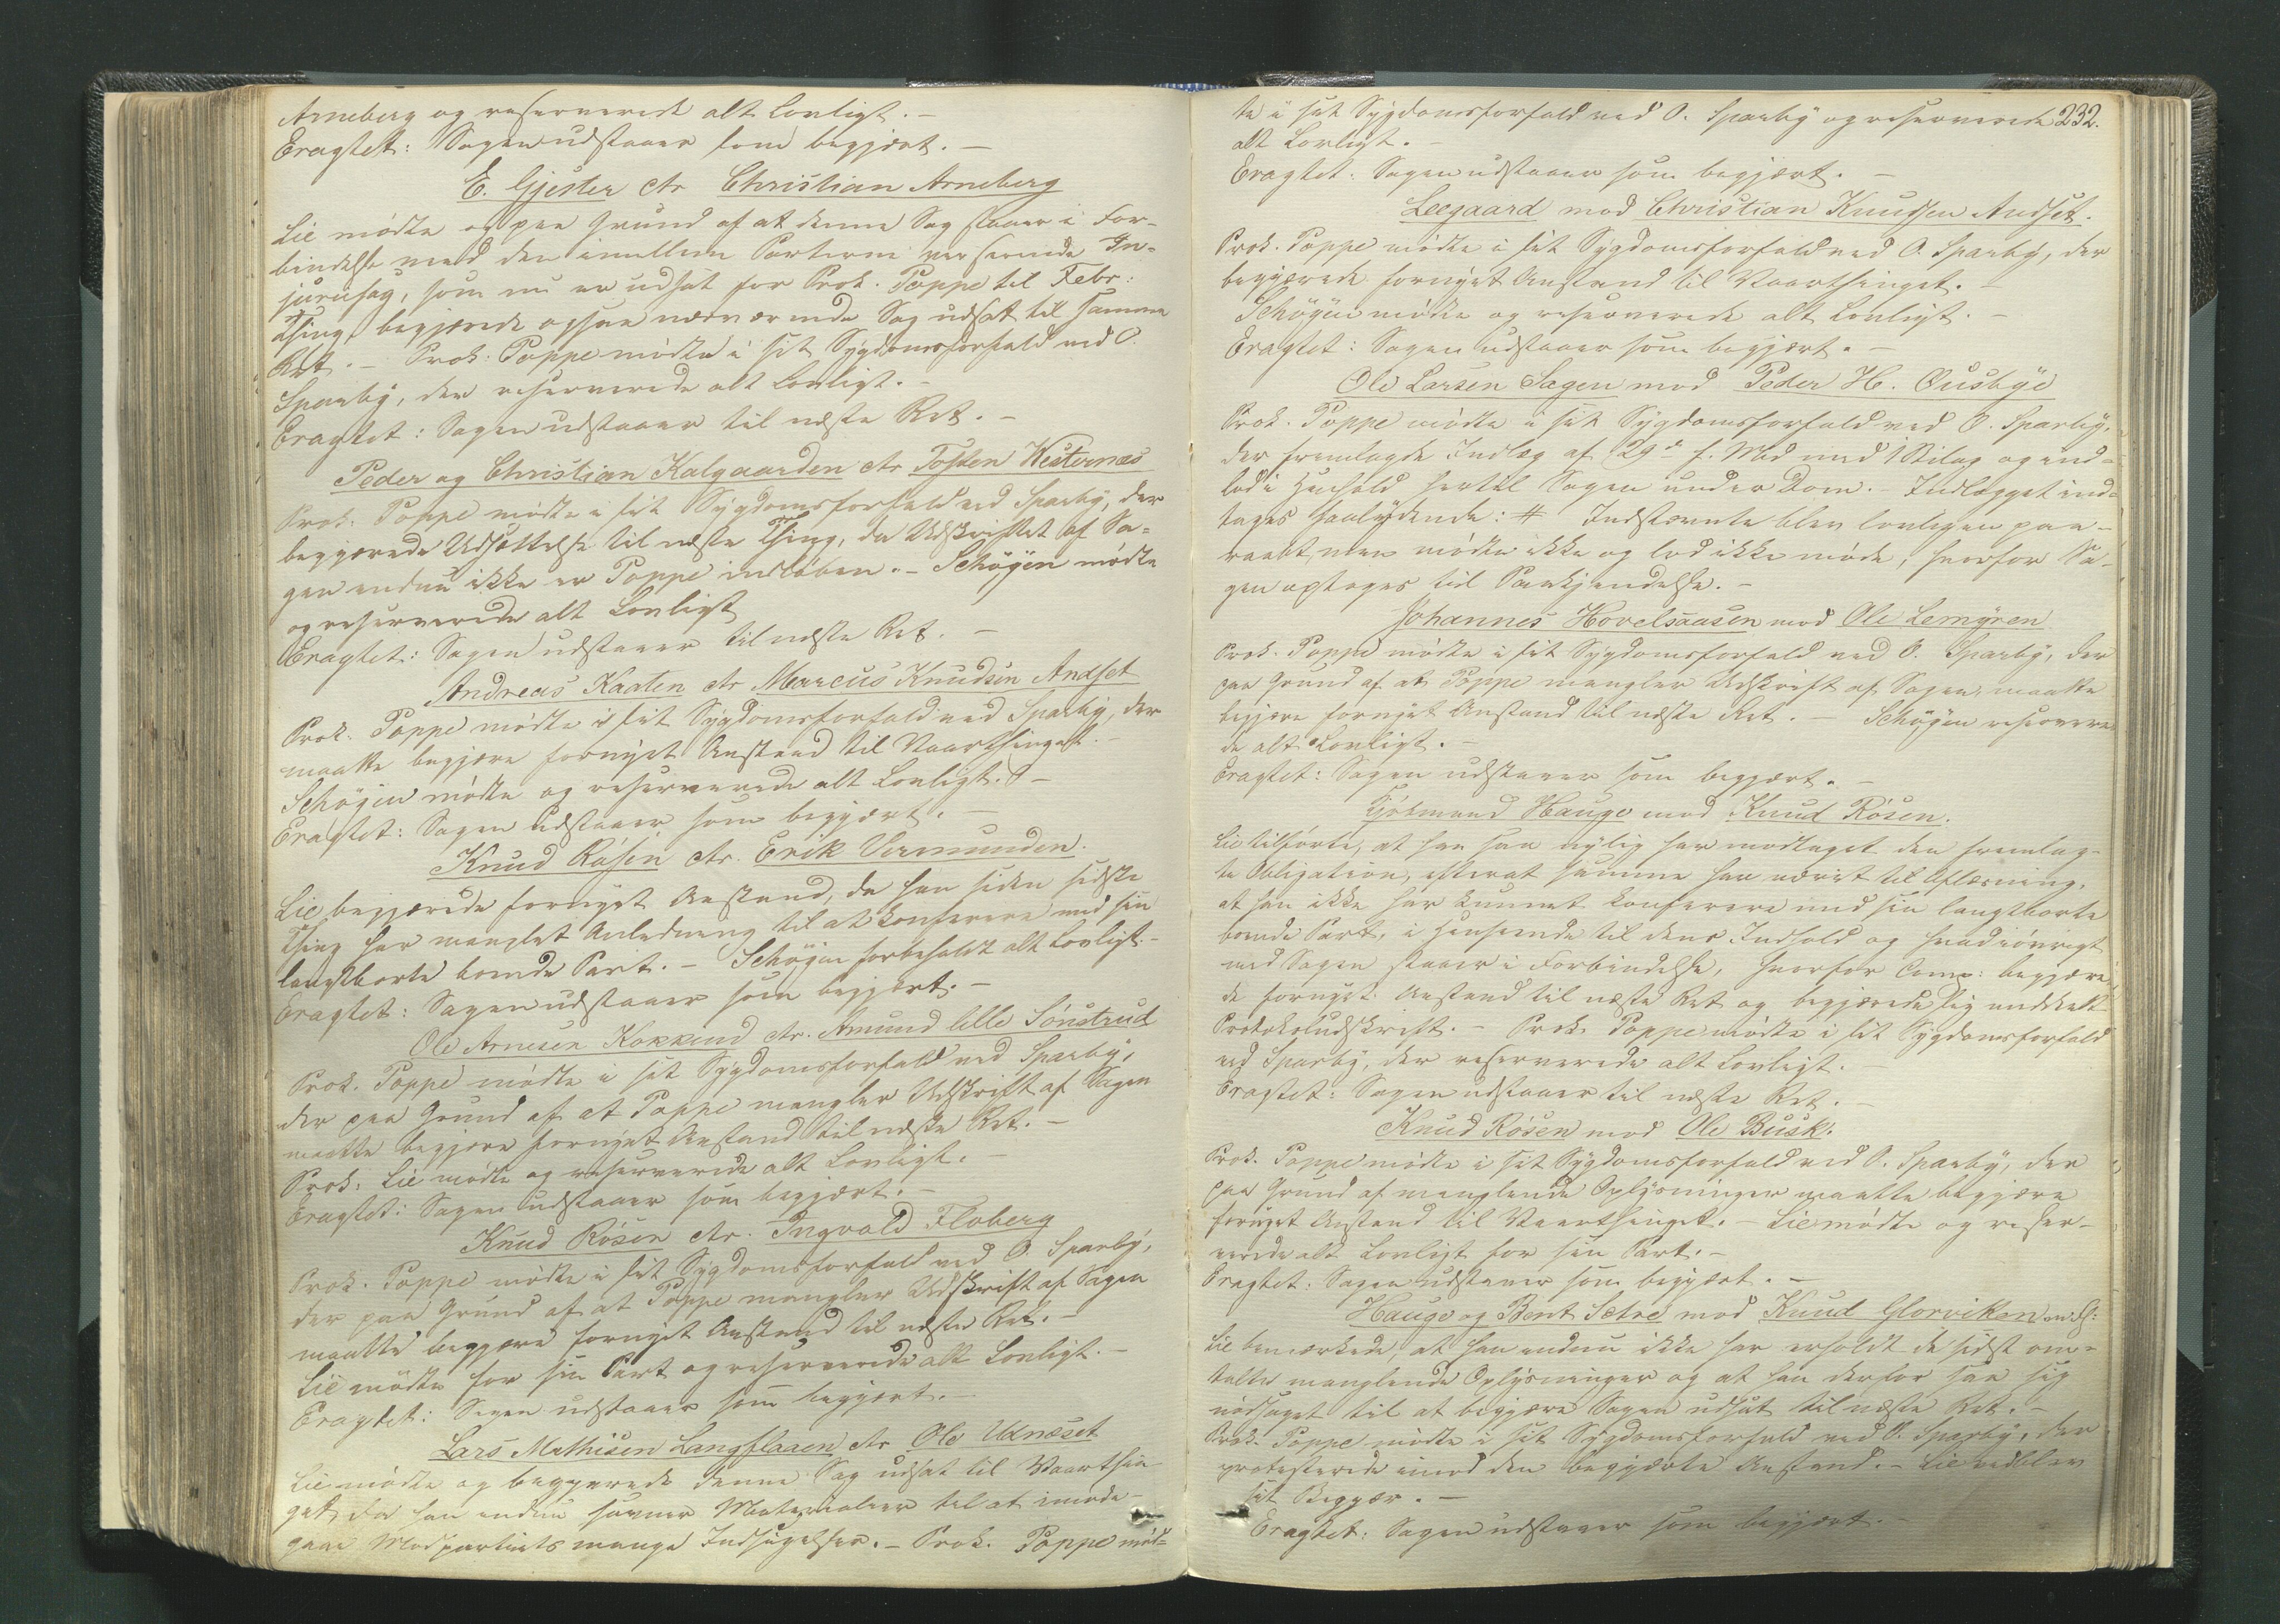 Arneberg og reserverede alt Lovligt. –
Eragtet: Sagen udstaaer som begjært. –
E. Gjester ctr Christian Arneberg
Lie mødte og paa Grund af at denne Sag staaer i For-
bindelse med den imellem Parterne verserende In-
juriesag, som nu er udsat for Prok. Poppe til Febr:
Thing, begjærede ogsaa nærværende Sag udsat til samme
Ret. – Prok. Poppe mødte i sit Sygdomsforfald ved O.
Sparby, der reserverede alt Lovligt. –
Eragtet: Sagen udstaaer til næste Ret. –
Peder og Christian Kalgaarden ctr Tosten Westernæs
Prok. Poppe mødte i sit Sygdomsforfald ved Sparby, der
begjærede Udsættelse til næste Thing, da Udskriftet af Sa-
gen endnu ikke er Poppe indløben. – Schøyen mødte
og reserverede alt Lovligt
Eragtet: Sagen udstaaer til næste Ret. –
Andreas Kaaten ctr Marcus Knudsen Andset
Prok. Poppe mødte i sit Sygdomsforfald ved Sparby, der
maatte begjære fornyet Anstand til Vaarthinget. –
Schøyen mødte og reserverede alt Lovligt. –
Eragtet: Sagen udstaaer som begjært. –
Knud Røsen ctr. Erik Vermunden.
Lie begjærede fornyet Anstand, da han siden sidste
Thing har manglet Anledning til at konferere med sin
langtborte boende Part. – Schøyen forbeholdt alt Lovligt. –
Eragtet: Sagen udstaaer som begjært. –
Ole Arnesen Kokkend ctr. Amund lille Sønstrud
Prok. Poppe mødte i sit Sygdomsforfald ved Sparby,
der paa Grund af at Poppe mangler Udskrift af Sagen
maatte begjære fornyet Anstand til næste Ret. –
Prok. Lie mødte og reserverede alt Lovligt. –
Eragtet: Sagen udstaaer som begjært. –
Knud Røsen ctr. Ingvald Floberg
Prok. Poppe mødte i sit Sygdomsforfald ved O. Sparby,
der paa Grund af at Poppe mangler Udskrift af Sagen
maatte begjære fornyet Anstand til næste Ret. –
Lie mødte for sin Part og reserverede alt Lovligt. –
Eragtet: Sagen udstaaer som begjært. –
Lars Mathisen Langflaaen ctr Ole Udnæset
Lie mødte og begjærede denne Sag udsat til Vaarthin-
get, da han endnu savner Materialier til at imøde-
gaae Modpartiets mange Indsigelser. – Prok. Poppe mød-
te i sit Sygdomsforfald ved O. Sparby og reserverede 232.
alt Lovligt. –
Eragtet: Sagen udstaaer som begjært. –
Leegaard mod Christian Knudsen Andset.
Prok. Poppe mødte i sit Sygdomsforfald ved O. Sparby, der
begjærede fornyet Anstand til Vaarthinget. –
Schøyen mødte og reserverede alt Lovligt. –
Eragtet: Sagen udstaaer som begjært. –
Ole Larsen Sagen mod Peder H. Qusbye
Prok. Poppe mødte i sit Sygdomsforfald ved O. Sparby,
der fremlagde Indlæg af 29de f. Md med 1 Bilag og ind-
lod i Henhold hertil Sagen under Dom. – Indlægget ind-
tages saalydende: # Indstævnte blev lovligen paa-
raabt, men mødte ikke og lod ikke møde, hvorfor Sa-
gen optoges til Paakjendelse. –
Johannes Hovelsaasen mod Ole Lemyren
Prok. Poppe mødte i sit Sygdomsforfald ved O. Sparby, der
paa Grund af at Poppe mangler Udskrift af Sagen maatte
begjære fornyet Anstand til næste Ret. – Schøyen reservere-
de alt Lovligt. –
Eragtet: Sagen udstaaer som begjært. –
Kjøbmand Hauge mod Knud Røsen.
Lie tilførte, at han saa nylig har modtaget den fremlag-
te Obligation, efterat samme har været til Aflæsning,
at han ikke har kunnet konferere med sin langtborte
boende Part, i Henseende til dens Indhold og hvad iøvrigt
med Sagen staaer i Forbindelse, hvorfor Comp: begjære-
de fornyet Anstand til næste Ret og begjærede sig meddeelt
Protokoludskrift. – Prok. Poppe mødte i sit Sygdomsforfald
ved Sparby, der reserverede alt Lovligt. –
Eragtet: Sagen udstaaer til næste Ret. –
Knud Røsen mod Ole Busk.
Prok. Poppe mødte i sit Sygdomsforfald ved O. Sparby, der
paa Grund af manglende Oplysninger maatte begjære
fornyet Anstand til Vaarthinget. – Lie mødte og reser-
verede alt Lovligt for sin Part. –
Eragtet: Sagen udstaaer som begjært. –
Hauge og Bernt Sætre mod Knud Glorvikken
Lie bemærkede, at han endnu ikke har erholdt de sidst om-
talte manglende Oplysninger og at han derfor saa sig
nødsaget til at begjære Sagen udsat til næste Ret. –
Prok. Poppe mødte i sit Sygdomsforfald ved O. Sparby, der
protesterede imod den begjærte Anstand. – Lie vedblev
sit Begjær. –
Eragtet: Sagen udstaaer som begjært. –